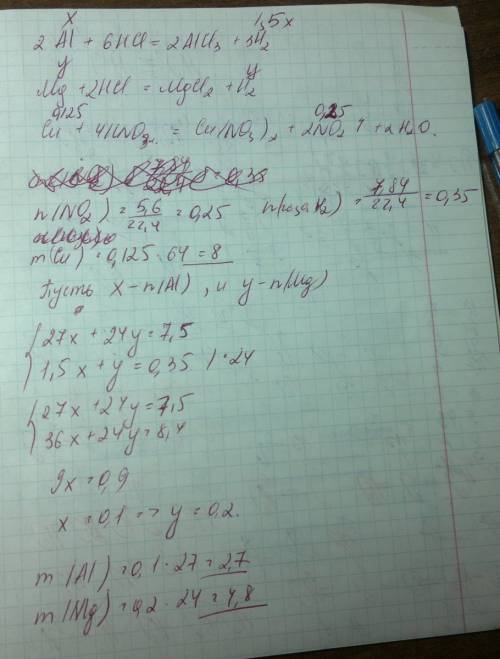 x 1,5x
2Al + 6HCl = 2AlCl₃ + 3H₂
y y
Mg + 2HCl = MgCl₂ + H₂
0,125 0,25
Cu + 4HNO₃ = Cu(NO₃)₂ + 2NO₂↑ + 2H₂O.
n(NO₂) = 5,6/22,4 = 0,25 n(газа H₂) = 7,84/22,4 = 0,35
m(Cu) = 0,125 · 64 = 8
Пусть x - n(Al), и y - n(Mg)
{ 27x + 24y = 7,5
1,5x + y = 0,35 | · 24
{ 27x + 24y = 7,5
36x + 24y = 8,4
9x = 0,9
x = 0,1 => y = 0,2.
m(Al) = 0,1 · 27 = 2,7
m(Mg) = 0,2 · 24 = 4,8